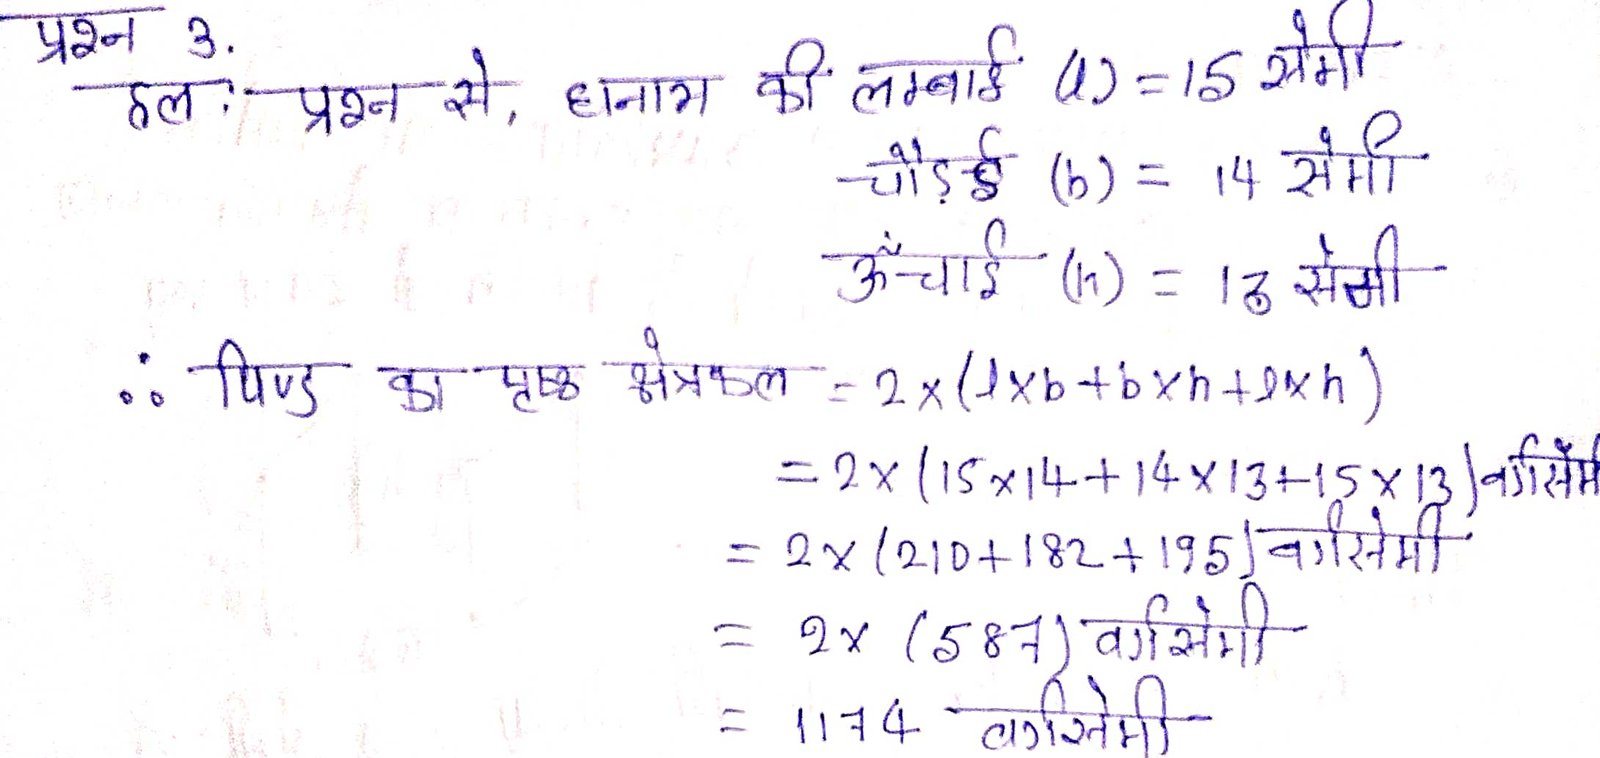 प्रश्न 3.
हल :- प्रश्न से, घनाभ की लम्बाई (l) = 15 सेमी
चौड़ई (b) = 14 सेमी
ऊँचाई (h) = 13 सेमी
∴ पिण्ड का पृष्ठ क्षेत्रफल = 2 × (l × b + b × h + l × h)
= 2 × (15 × 14 + 14 × 13 + 15 × 13) वर्गसेमी
= 2 × (210 + 182 + 195) वर्गसेमी
= 2 × (587) वर्गसेमी
= 1174 वर्गसेमी